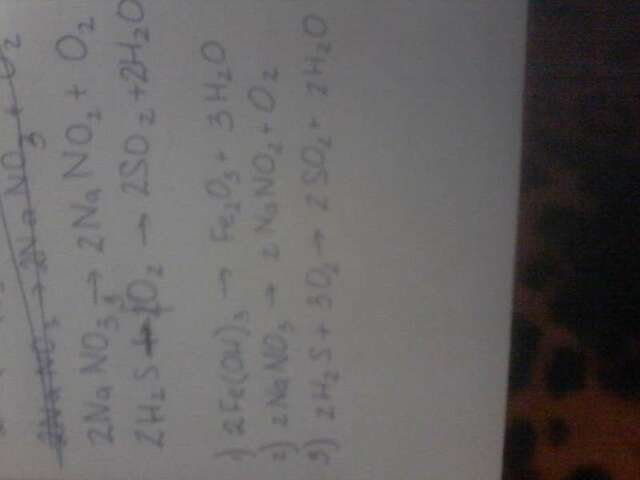 2NaNO₃ → 2NaNO₃ + O₂
2NaNO₃ → 2NaNO₂ + O₂
2H₂S + O₂ → 2SO₂ + 2H₂O
1) 2Fe(OH)₃ → Fe₂O₃ + 3H₂O
2) 2NaNO₃ → 2NaNO₂ + O₂
3) 2H₂S + 3O₂ → 2SO₂ + 2H₂O